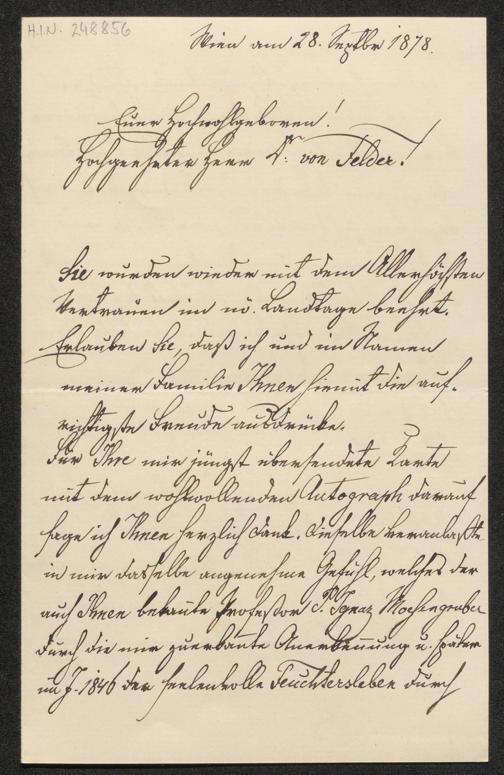 H.I.N. 248856
Wien am 28. Septbr 1878.
Euer Hochwohlgeboren!
Hochgeehrter Herr Dr. von Felder!
Sie wurden wieder mit dem Allerhöchsten
Vertrauen im nö. Landtage beehrt.
Erlauben Sie, daß ich und im Namen
meiner Familie Ihnen hiemit die auf-
richtigste Freude ausdrücke.
Für Ihre mir jüngst übersendete Karte
mit dem wohlwollenden Autograph darauf
sage ich Ihnen herzlich Dank. Dieselbe veranlaßte
in mir dasselbe angenehme Gefühl, welches der
auch Ihnen bekante Professor P. Ignaz
durch die mir zuerkante Anerkennung u. später
im J. 1846 der seelenvolle Feuchtersleben durch